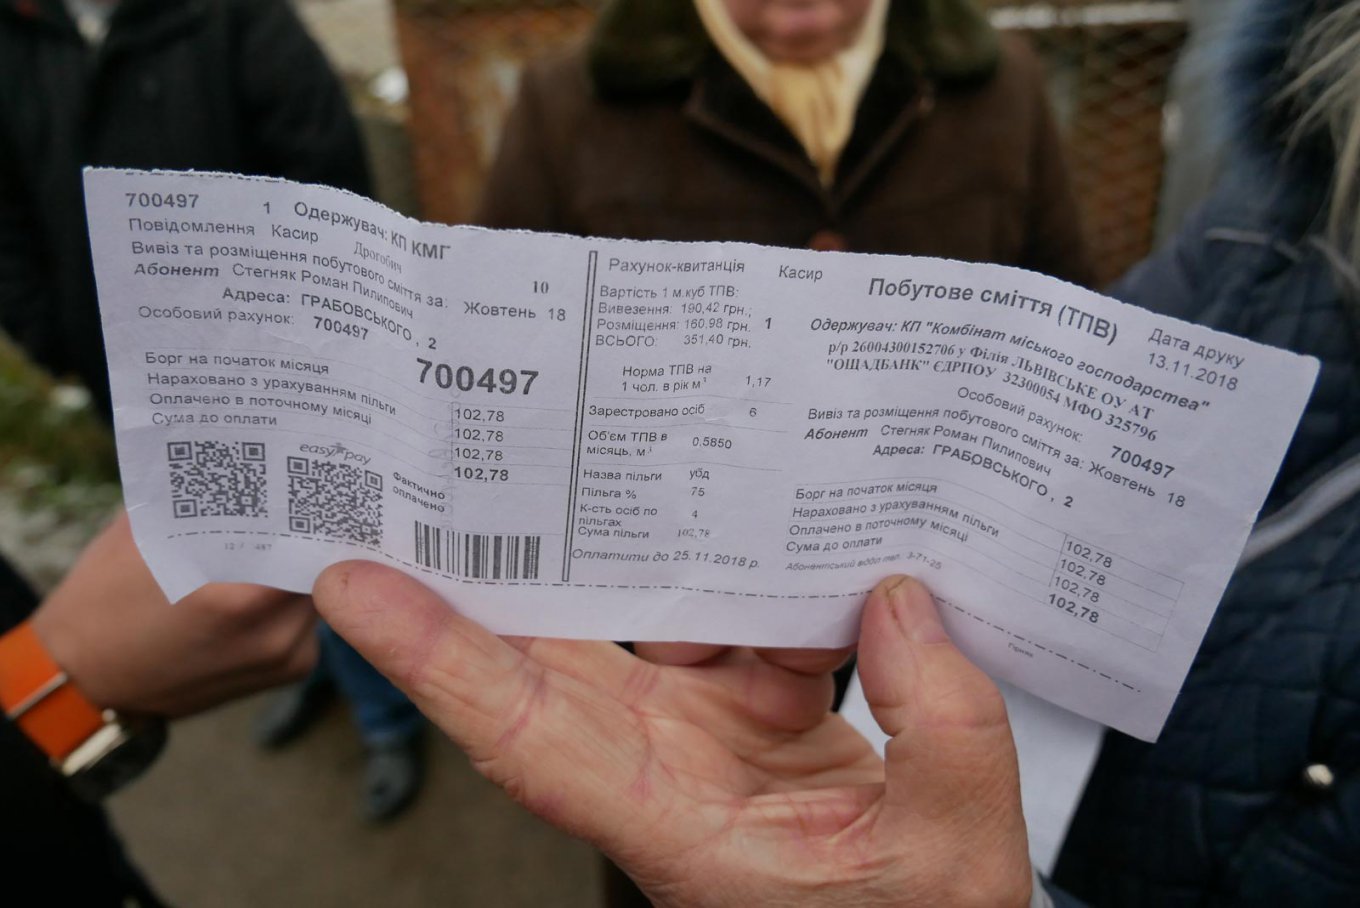 700497 1 Одержувач: КП КМГ
Повідомлення Касир Дрогобич
Вивіз та розміщення побутового сміття за: Жовтень 18
10
Абонент Стегняк Роман Пилипович
Адреса: ГРАБОВСЬКОГО , 2
Особовий рахунок: 700497
700497
Борг на початок місяця 102,78
Нараховано з урахуванням пільги 102,78
Оплачено в поточному місяці 102,78
Сума до оплати 102,78
easypay
Фактично
оплачено
Рахунок-квитанція Касир
Вартість 1 м.куб ТПВ:
Вивезення: 190,42 грн.;
Розміщення: 160,98 грн. 1
ВСЬОГО: 351,40 грн.
Норма ТПВ на
1 чол. в рік м³ 1,17
Зарестровано осіб 6
Об'єм ТПВ в
місяць, м³ 0.5850
Назва пільги убд
Пільга % 75
К-сть осіб по
пільгах 4
Сума пільги 102,78
Оплатити до 25.11.2018 р.
Побутове сміття (ТПВ)
Дата друку
13.11.2018
Одержувач: КП "Комбінат міського господарства"
р/р 26004300152706 у Філія ЛЬВІВСЬКЕ ОУ АТ
"ОЩАДБАНК" ЄДРПОУ 3230054 МФО 325796
Особовий рахунок: 700497
Вивіз та розміщення побутового сміття за: Жовтень 18
Абонент Стегняк Роман Пилипович
Адреса: ГРАБОВСЬКОГО , 2
Борг на початок місяця 102,78
Нараховано з урахуванням пільги 102,78
Оплачено в поточному місяці 102,78
Сума до оплати 102,78
Абонентський відділ тел. 3-71-25